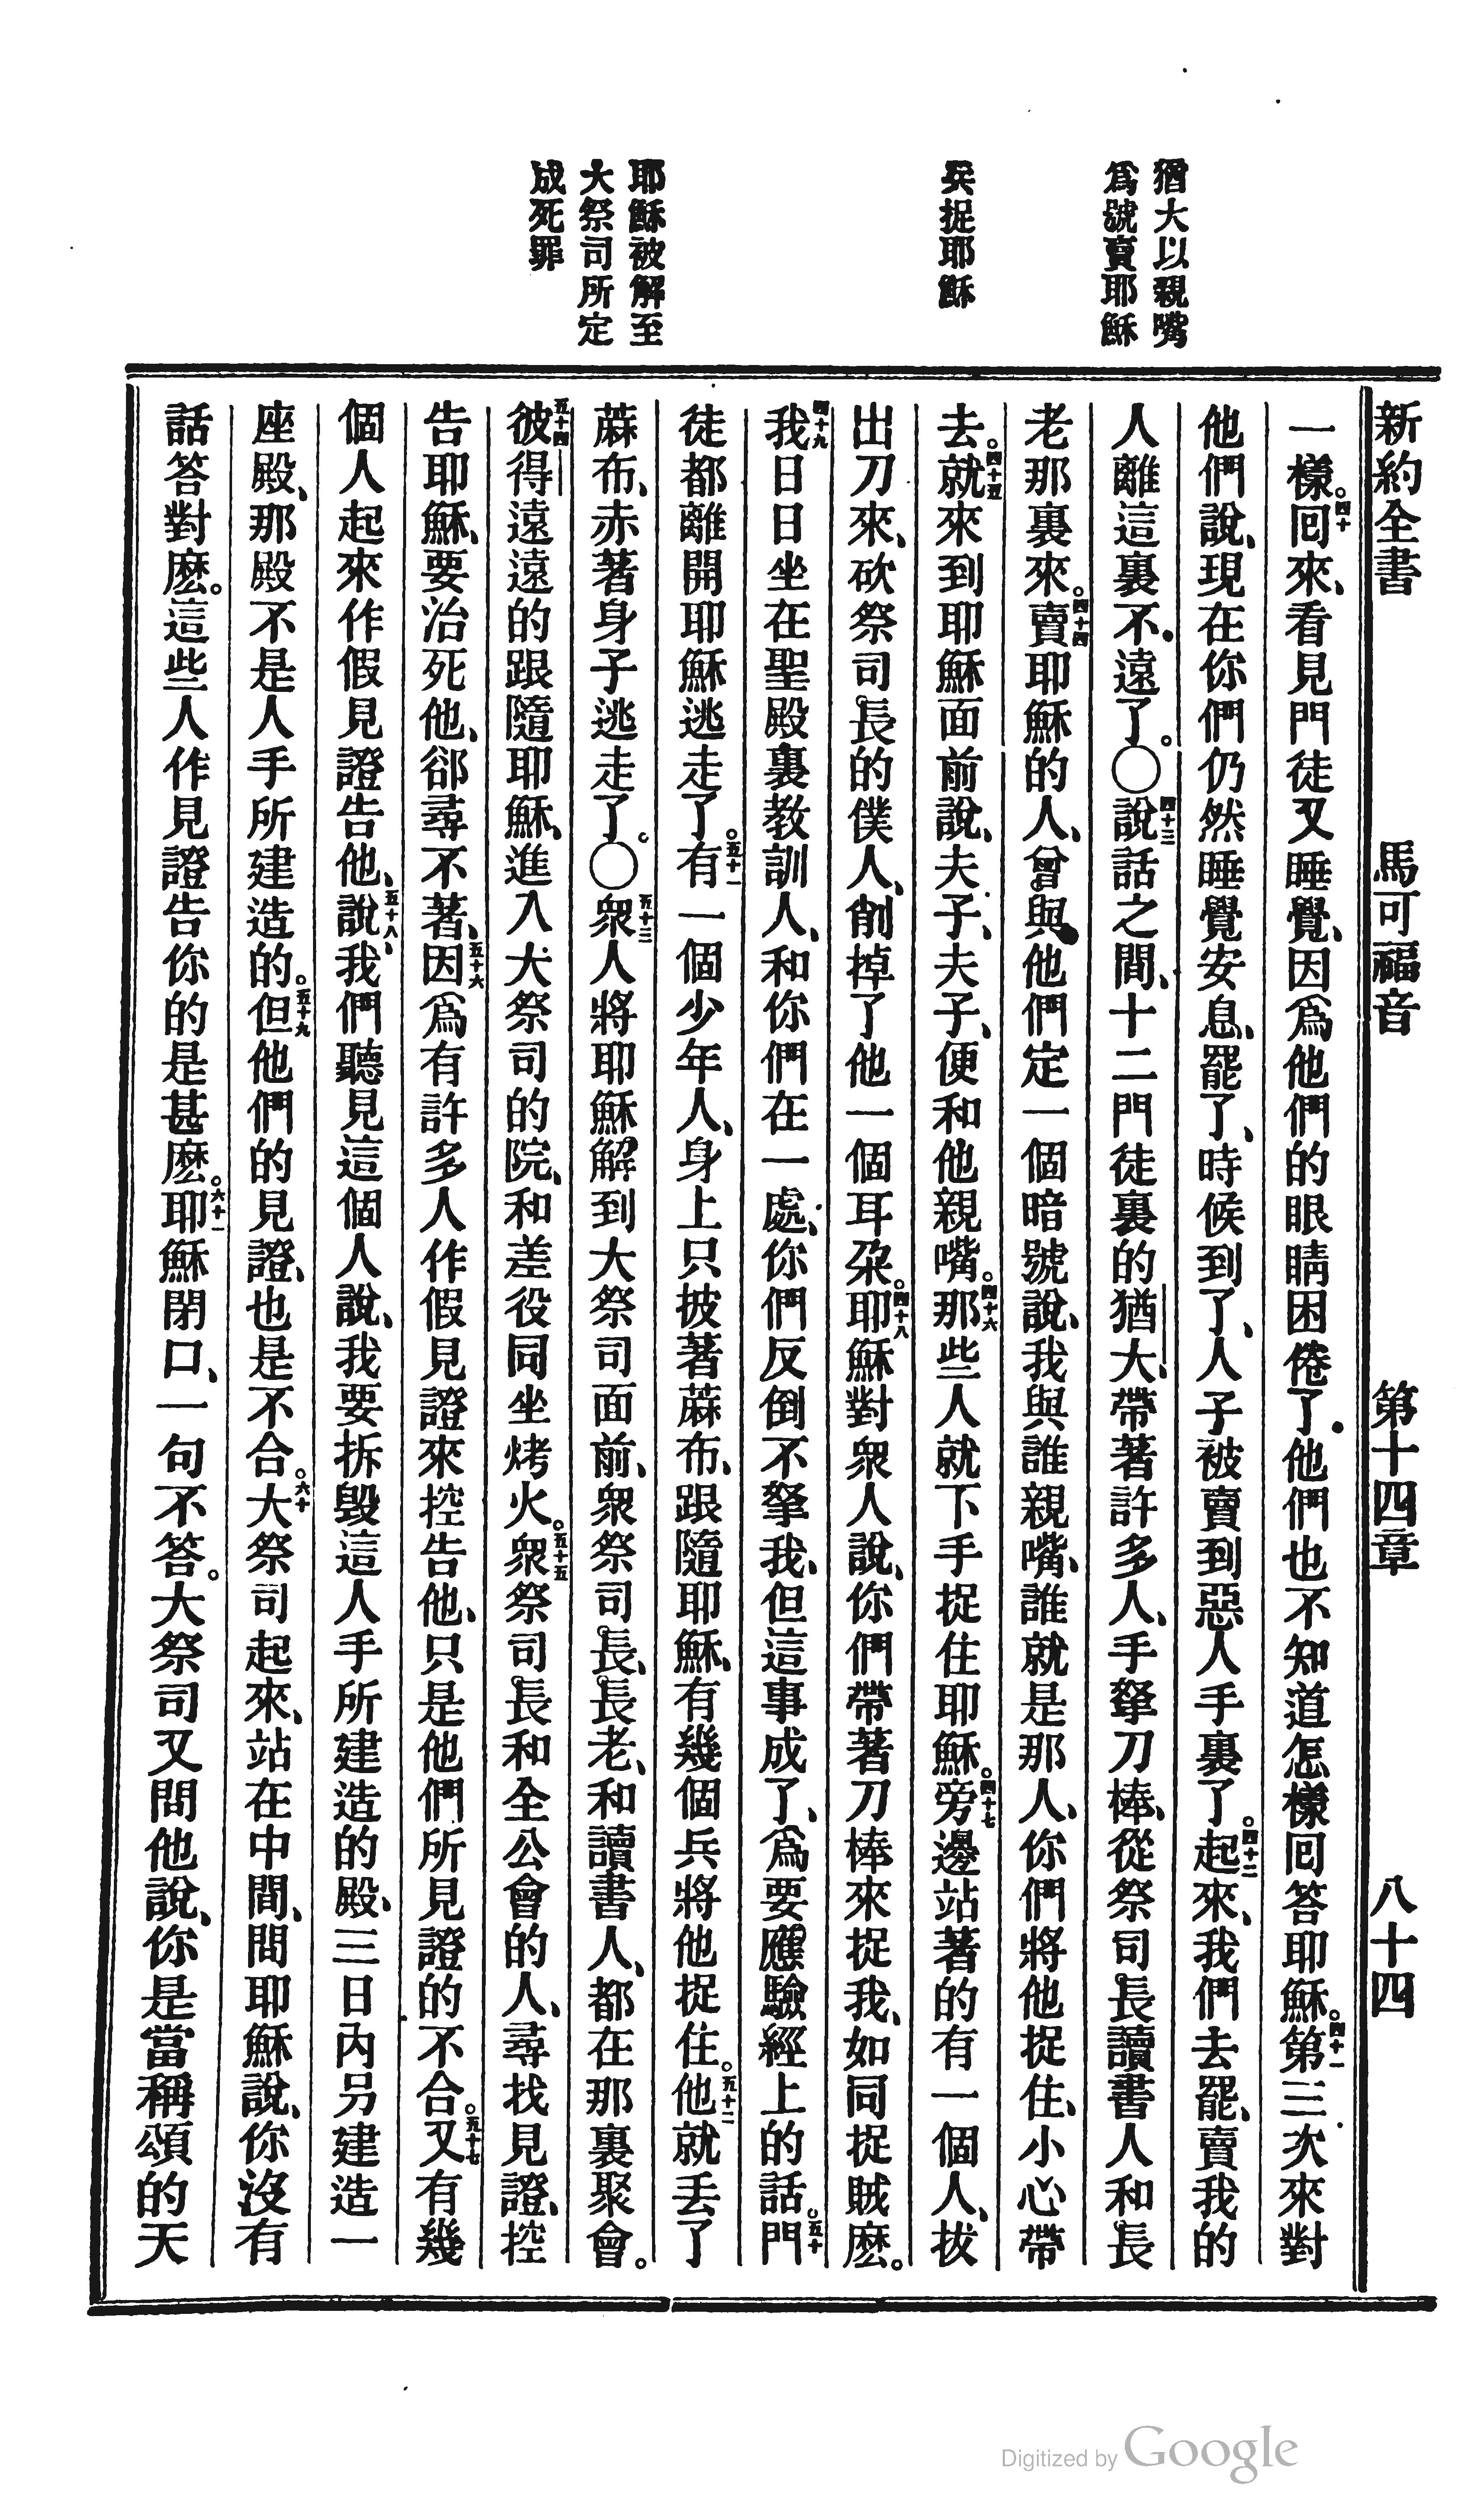 新約全書 馬可福音 第十四章 八十四
猶大以親嘴
爲號賣耶穌
兵捉耶穌
耶穌被解至
大祭司所定
成死罪
一樣。四十回來、看見門徒又睡覺、因爲他們的眼睛困倦了、他們也不知道怎樣回答耶穌。四十一第三次來對
他們說、現在你們仍然睡覺安息、罷了、時候到了、人子被賣到惡人手裏了。四十二起來、我們去罷、賣我的
人離這裏不遠了。〇四十三說話之間、十二門徒裏的猶大、帶著許多人、手拏刀棒、從祭司長讀書人和長
老那裏來。四十四賣耶穌的人、曾與他們定一個暗號說、我與誰親嘴、誰就是那人、你們將他捉住、小心帶
去。四十五就來到耶穌面前說、夫子、夫子、便和他親嘴。四十六那些人就下手捉住耶穌。四十七旁邊站著的有一個人、拔
出刀來、砍祭司長的僕人、削掉了他一個耳朶。四十八耶穌對衆人說、你們帶著刀棒來捉我、如同捉賊麽。
四十九我日日坐在聖殿裏教訓人、和你們在一處、你們反倒不拏我、但這事成了、爲要應驗經上的話。五十門
徒都離開耶穌逃走了。五十一有一個少年人、身上只披著蔴布、跟隨耶穌、有幾個兵將他捉住。五十二他就丟了
蔴布、赤著身子逃走了。〇五十三衆人將耶穌解到大祭司面前、衆祭司長、長老、和讀書人、都在那裏聚會。
五十四彼得遠遠的跟隨耶穌、進入大祭司的院、和差役同坐烤火。五十五衆祭司長和全公會的人、尋找見證、控
告耶穌、要治死他、郤尋不著、五十六因爲有許多人作假見證來控告他、只是他們所見證的不合。五十七又有幾
個人起來作假見證告他、五十八說、我們聽見這個人說、我要拆毀這人手所建造的殿、三日內另建造一
座殿、那殿不是人手所建造的。五十九但他們的見證、也是不合。六十大祭司起來、站在中間、問耶穌說、你沒有
話答對麽。這些人作見證告你的是甚麽。六十一耶穌閉口、一句不答。大祭司又問他說、你是當稱頌的天
Digitized by Google